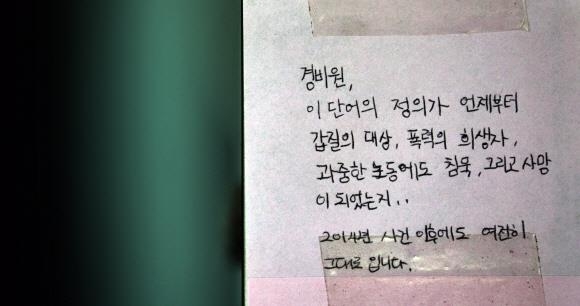 경비원,
이 단어의 정의가 언제부터
갑질의 대상, 폭력의 희생자,
과중한 노동에도 침묵, 그리고 사망
이 되었는지..
2014년 사건 이후에도 여전히
그대로 입니다.